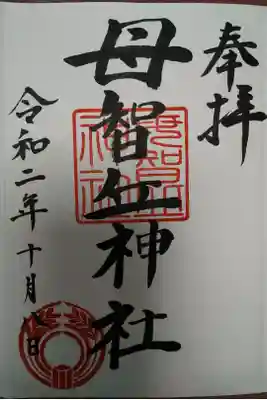 奉拝
母智丘神社
令和二年十月八日